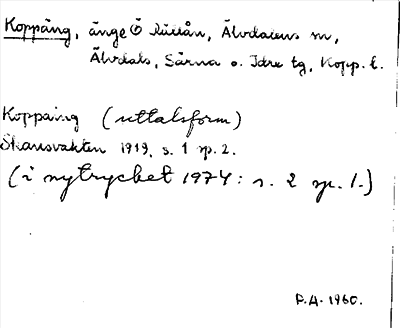 Koppäng, änge Ö Rutån, Älvdalens sn,
Älvdals, Särna o. Idre tg, Kopp. l.
Koppaing (uttalsform)
Skansvakten 1919, s. 1 sp. 2.
(i nytrycket 1974: s. 2 sp. 1.)
P.A. 1960.